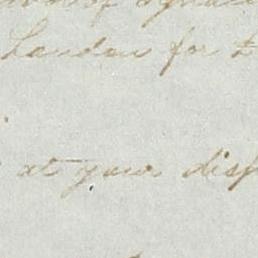 of
London for
at your disp